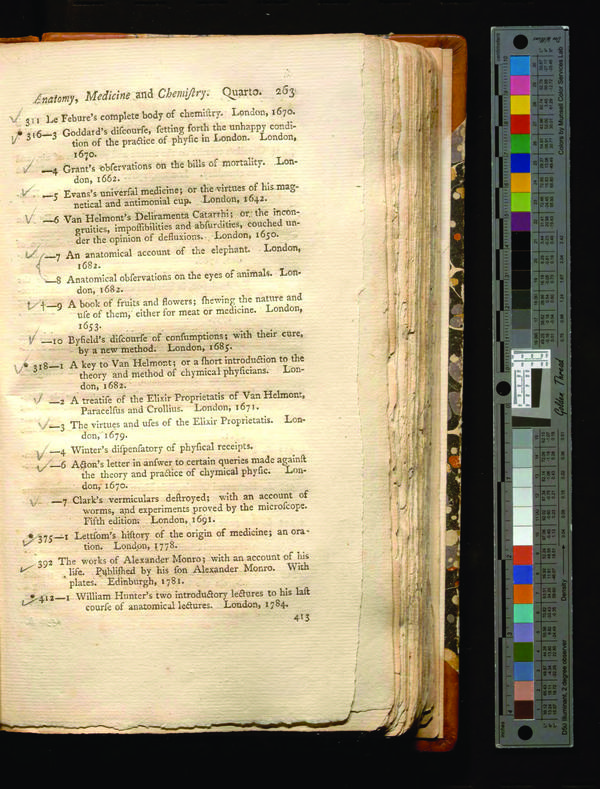 Anatomy, Medicine and Chemiſtry. Quarto. 263
311 Le Febure's complete body of chemiſtry. London, 1670.
* 316—3 Goddard's diſcourſe, ſetting forth the unhappy condi-
tion of the practice of phyſic in London. London,
1670.
—4 Grant's obſervations on the bills of mortality. Lon-
don, 1662.
—5 Evans's univerſal medicine; or the virtues of his mag-
netical and antimonial cup. London, 1642.
—6 Van Helmont's Deliramenta Catarrhi; or the incon-
gruities, impoſſibilities and abſurdities, couched un-
der the opinion of defluxions. London, 1650.
—7 An anatomical account of the elephant. London,
1682.
—8 Anatomical obſervations on the eyes of animals. Lon-
don, 1682.
—9 A book of fruits and flowers; ſhewing the nature and
uſe of them, either for meat or medicine. London,
1653.
—10 Byfield's diſcourſe of conſumptions; with their cure,
by a new method. London, 1685.
* 318—1 A key to Van Helmont; or a ſhort introduction to the
theory and method of chymical phyſicians. Lon-
don, 1682.
—2 A treatiſe of the Elixir Proprietatis of Van Helmont,
Paracelſus and Crollius. London, 1671.
—3 The virtues and uſes of the Elixir Proprietatis. Lon-
don, 1679.
—4 Winter's diſpenſatory of phyſical receipts.
—6 Acton's letter in anſwer to certain queries made againſt
the theory and practice of chymical phyſic. Lon-
don, 1670.
—7 Clark's vermiculars deſtroyed; with an account of
worms, and experiments proved by the microſcope.
Fifth edition. London, 1691.
* 375—1 Lettſom's hiſtory of the origin of medicine; an ora-
tion. London, 1778.
392 The works of Alexander Monro; with an account of his
life. Publiſhed by his ſon Alexander Monro. With
plates. Edinburgh, 1781.
* 412—1 William Hunter's two introductory lectures to his laſt
courſe of anatomical lectures. London, 1784.
413
Colors by Munsell Color Services Lab
Golden Thread
Density
D50 Illuminant, 2 degree observer